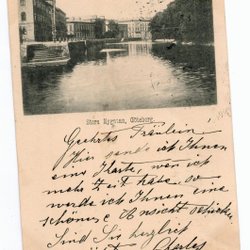 Stora Nygatan, Göteborg.
Geehrtes Fräulein!
Hier sende ich Ihnen
eine Karte, wen ich
mehr Zeit habe, so
werde ich Ihnen eine
schönere Ansicht schicken
Sind Sie herzlich